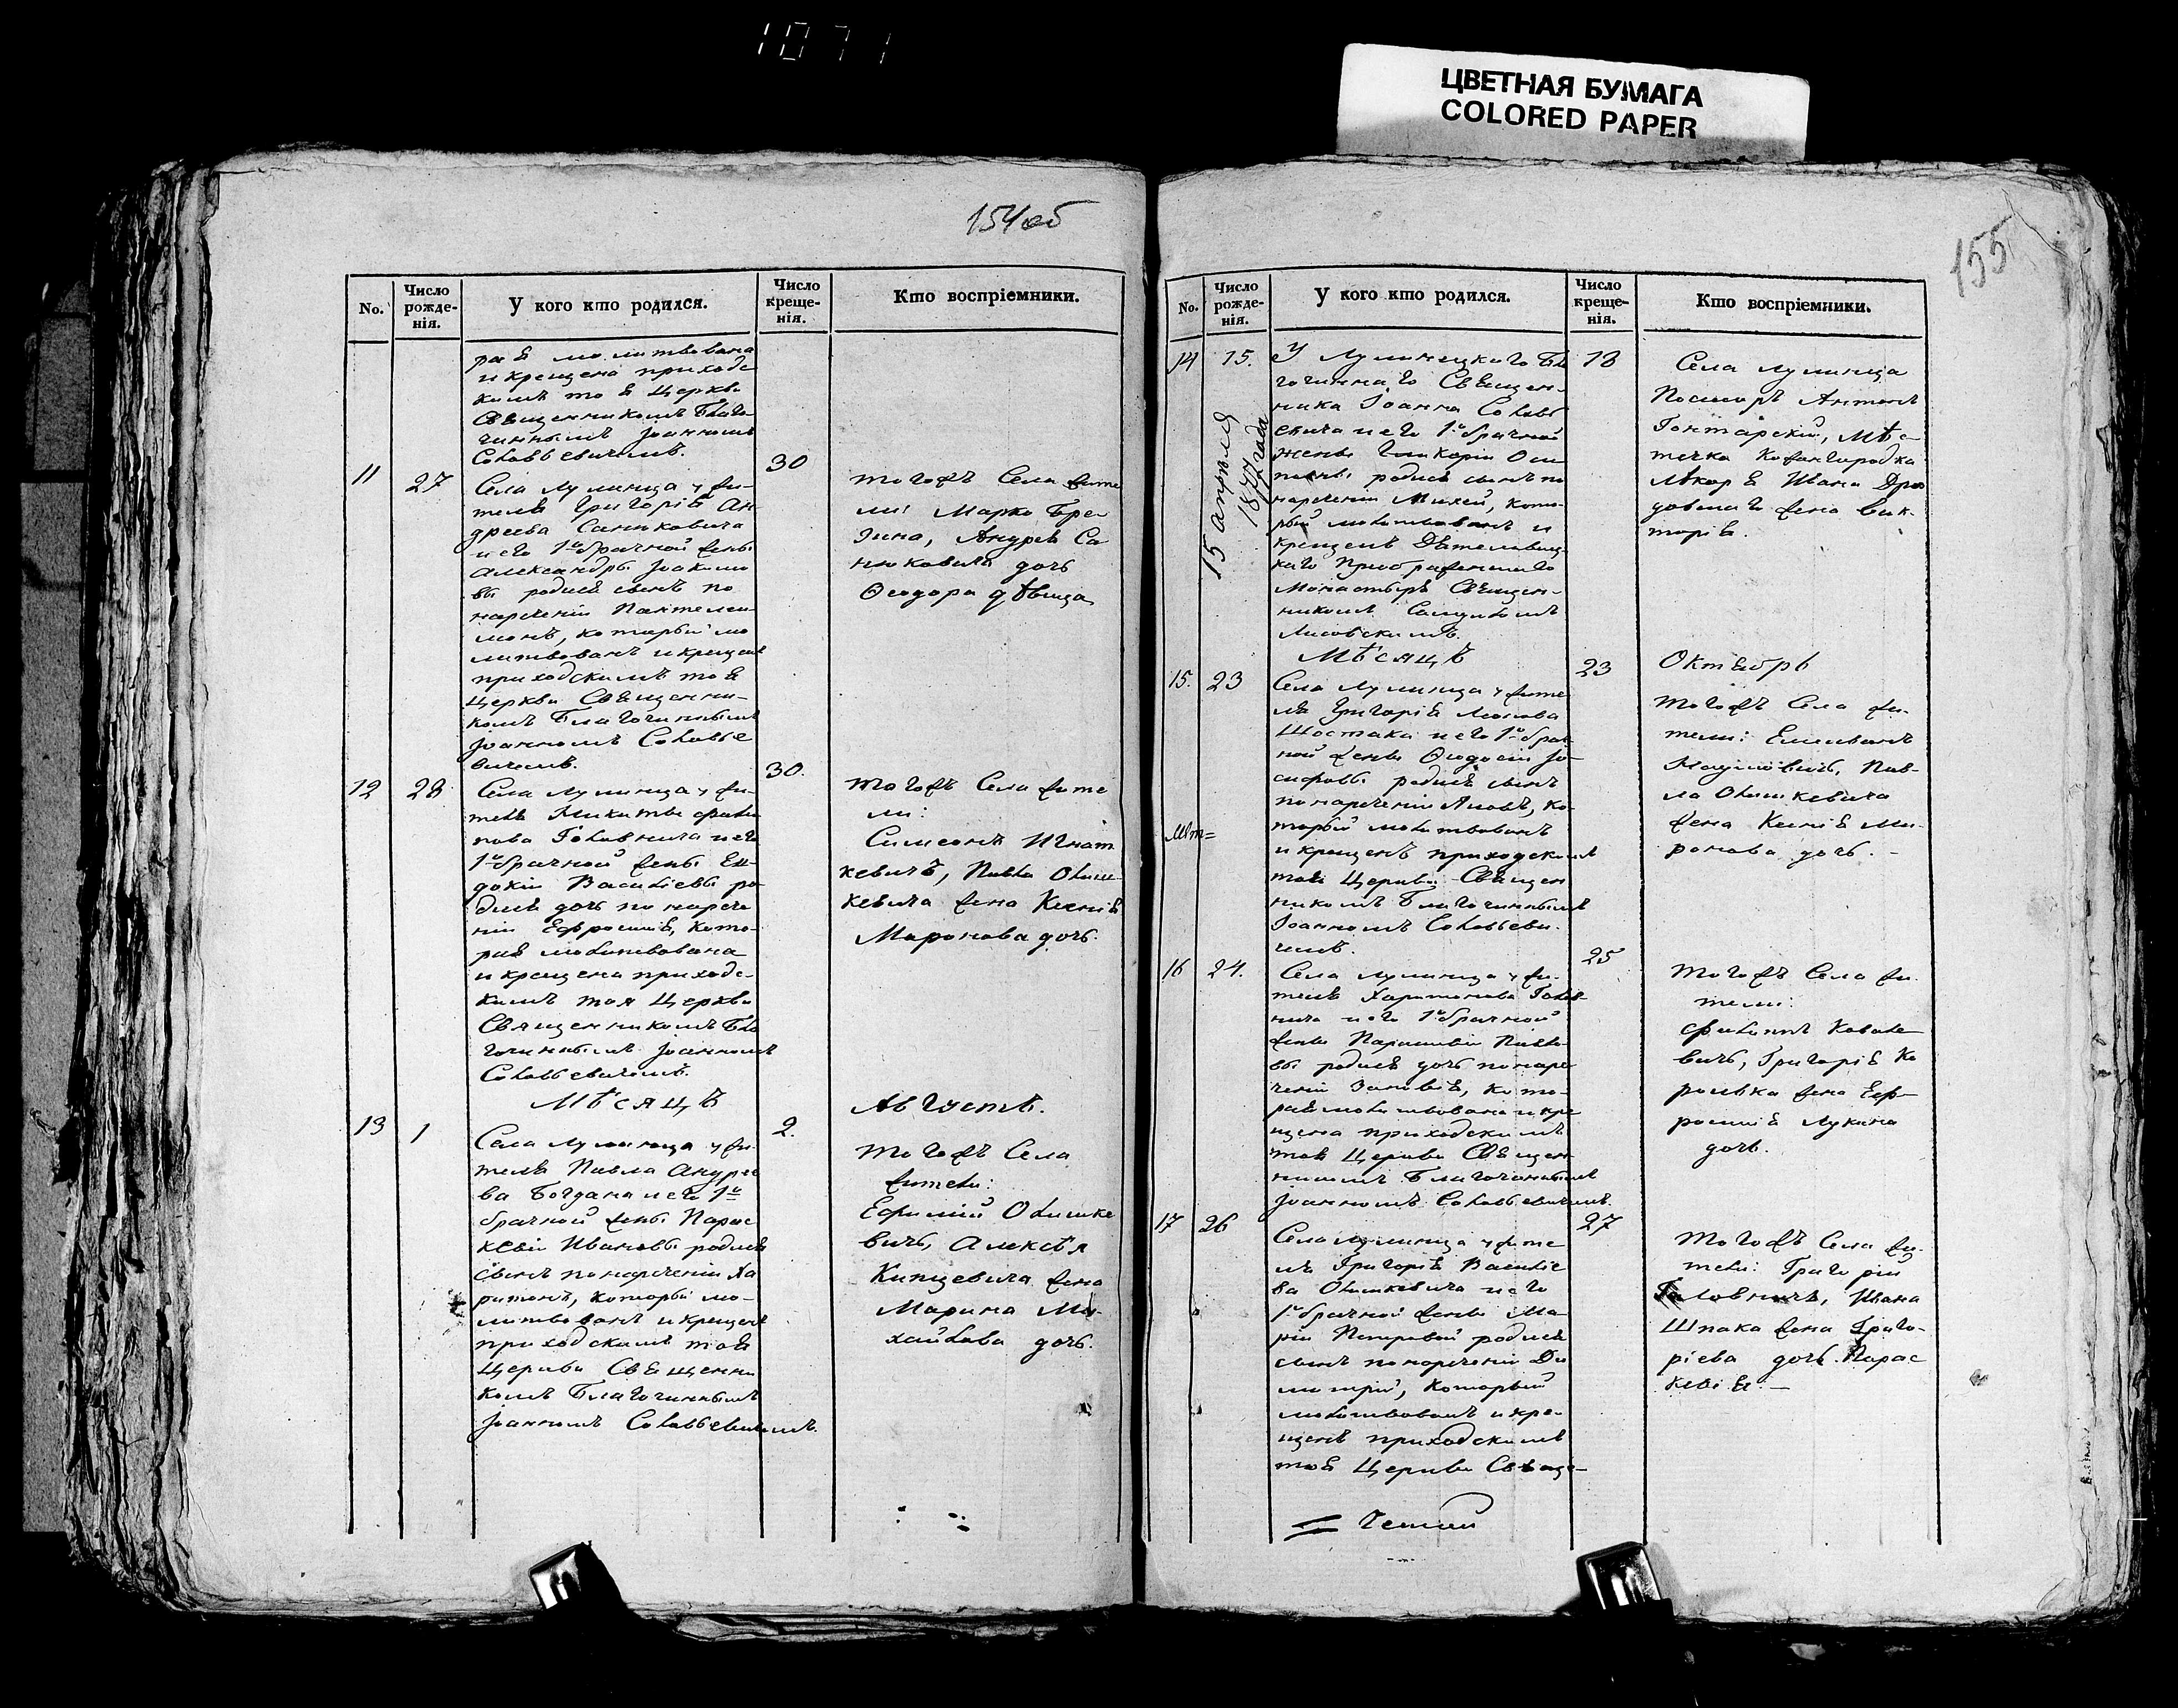 1071
ЦВЕТНАЯ БУМАГА
COLORED PAPER
154об
No.
Число рожде-нія.
У кого кто родился.
Число креще-нія.
Кто воспріемники.
рая молитвована
и крещена приходс
кимъ тоя Церкви
Священникомъ Благо
чиннымъ Іоанномъ
Соловьевичемъ.
11
27
30
Села Лулинца у жи-
теля Григорія Ан
дреева Санюковича
и его 1о брачной жены
Александры Іоакимо
вы родися сынъ по
наречении Пантелеи
монъ, который мо
литвованъ и крещенъ
приходскимъ тоя
Церкви Священни-
комъ Благочиннымъ
Іоанномъ Соловье
вичемъ.
тогожъ Села жите
ли: Марко Бре
зина, Андрея Са
нюковича дочь
Ѳеодора дѣвица
12
28
30.
Села Лулинца у жи-
теля Никиты Фили
пова Головнича и его
1о брачной жены Ев-
докіи Василіевы ро-
дися дочь по нарече
ніи Ефросинія, кото-
рая молитвована
и крещена приходс-
кимъ тоя Церкви
Священникомъ Бла
гочиннымъ Іоанномъ
Соловьевичемъ.
тогожъ Села жите
ли:
Симеонъ Игнат
кевичъ, Павла Олиш-
кевича жена Ксенія
Маронова дочь.
Мѣсяцъ
Августъ.
13
1
2.
Села Лулинца у жи-
теля Павла Андрее
ва Богдана и его 1о
брачной жены Парас
кевіи Ивановы родися
сынъ по нареченіи Ха
ритонъ, который мо-
литвованъ и крещенъ
приходскимъ тоя
Церкви Священни
комъ Благочиннымъ
Іоанномъ Соловьевичемъ.
тогожъ Села
жители:
Ефимій Олишке
вичъ, Алексѣя
Кипцевича жена
Марина Ми-
хайлова дочь.
155
No.
Число рожде-нія.
У кого кто родился.
Число креще-нія.
Кто воспріемники.
14
15.
18
15 апрѣля
1877 года
У Лулинецкаго Бла
гочиннаго Священ-
ника Іоанна Соловь
евича и его 1о брачной
жены Гликеріи Оси
повны родися сынъ по
нареченіи Михей, кото-
рый молитвованъ и
крещенъ Дятеловиц-
каго Преображенскаго
Монастыря Священ-
никомъ Самуиломъ
Лисовскимъ.
Села Лулинца
Посессоръ Антонъ
Гонтарский, Мѣс-
течка Кожангородка
Лѣкаря Ивана Дро
жена Вик-
торія.
Мѣсяцъ
Октябрь
15.
23
23
Села Лулинца у жите
ля Григорія Леонова
Шостака и его 1о брач
ной жены Ѳеодосіи Іо-
сифовы родися сынъ
по нареченіи Іаковъ, ко-
торый молитвованъ
и крещенъ приходскимъ
тоя Церкви Священ
никомъ Благочиннымъ
Іоанномъ Соловьеви-
чемъ.
тогожъ Села жи-
тели: Емельянъ
Пав-
ла Олишкевича
жена Ксенія Ми-
ронова дочь.
16
24.
25
Села Лулинца у жи-
теля Харитонова Голов-
нича и его 1о брачной
жены Параскевіи Павло-
вы родися дочь по наре
ченіи Зиновія, кото-
рая молитвована и кре
щена приходскимъ
тоя Церкви Священ
никомъ Благочиннымъ
Іоанномъ Соловьевичемъ.
тогожъ Села жи-
тели:
Филиппъ Ковале
вичъ, Григорія Ко
ролька жена Ефр-
росинія Лукина
дочь.
17
26
27
Села Лулинца у жите
ля Григорія Василіе
ва Олишкевича и его
1о брачной жены Ма-
ріи Петровой родися
сынъ по нареченіи Ди
митрій, который
молитвованъ и кре-
щенъ приходскимъ
тоя Церкви Священ-
тогожъ Села жи-
тели: Григорій
Головничъ, Ивана
Шпака жена Григо-
ріева дочь Парас
кевія.